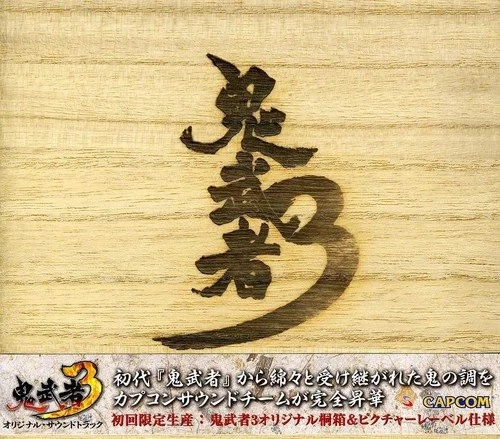 鬼武者3
鬼武者3
オリジナル・サウンドトラック
初代『鬼武者』から綿々と受け継がれた鬼の調を
カプコンサウンドチームが完全昇華
CAPCOM
初回限定生産：鬼武者3オリジナル桐箱&ピクチャーレーベル仕様